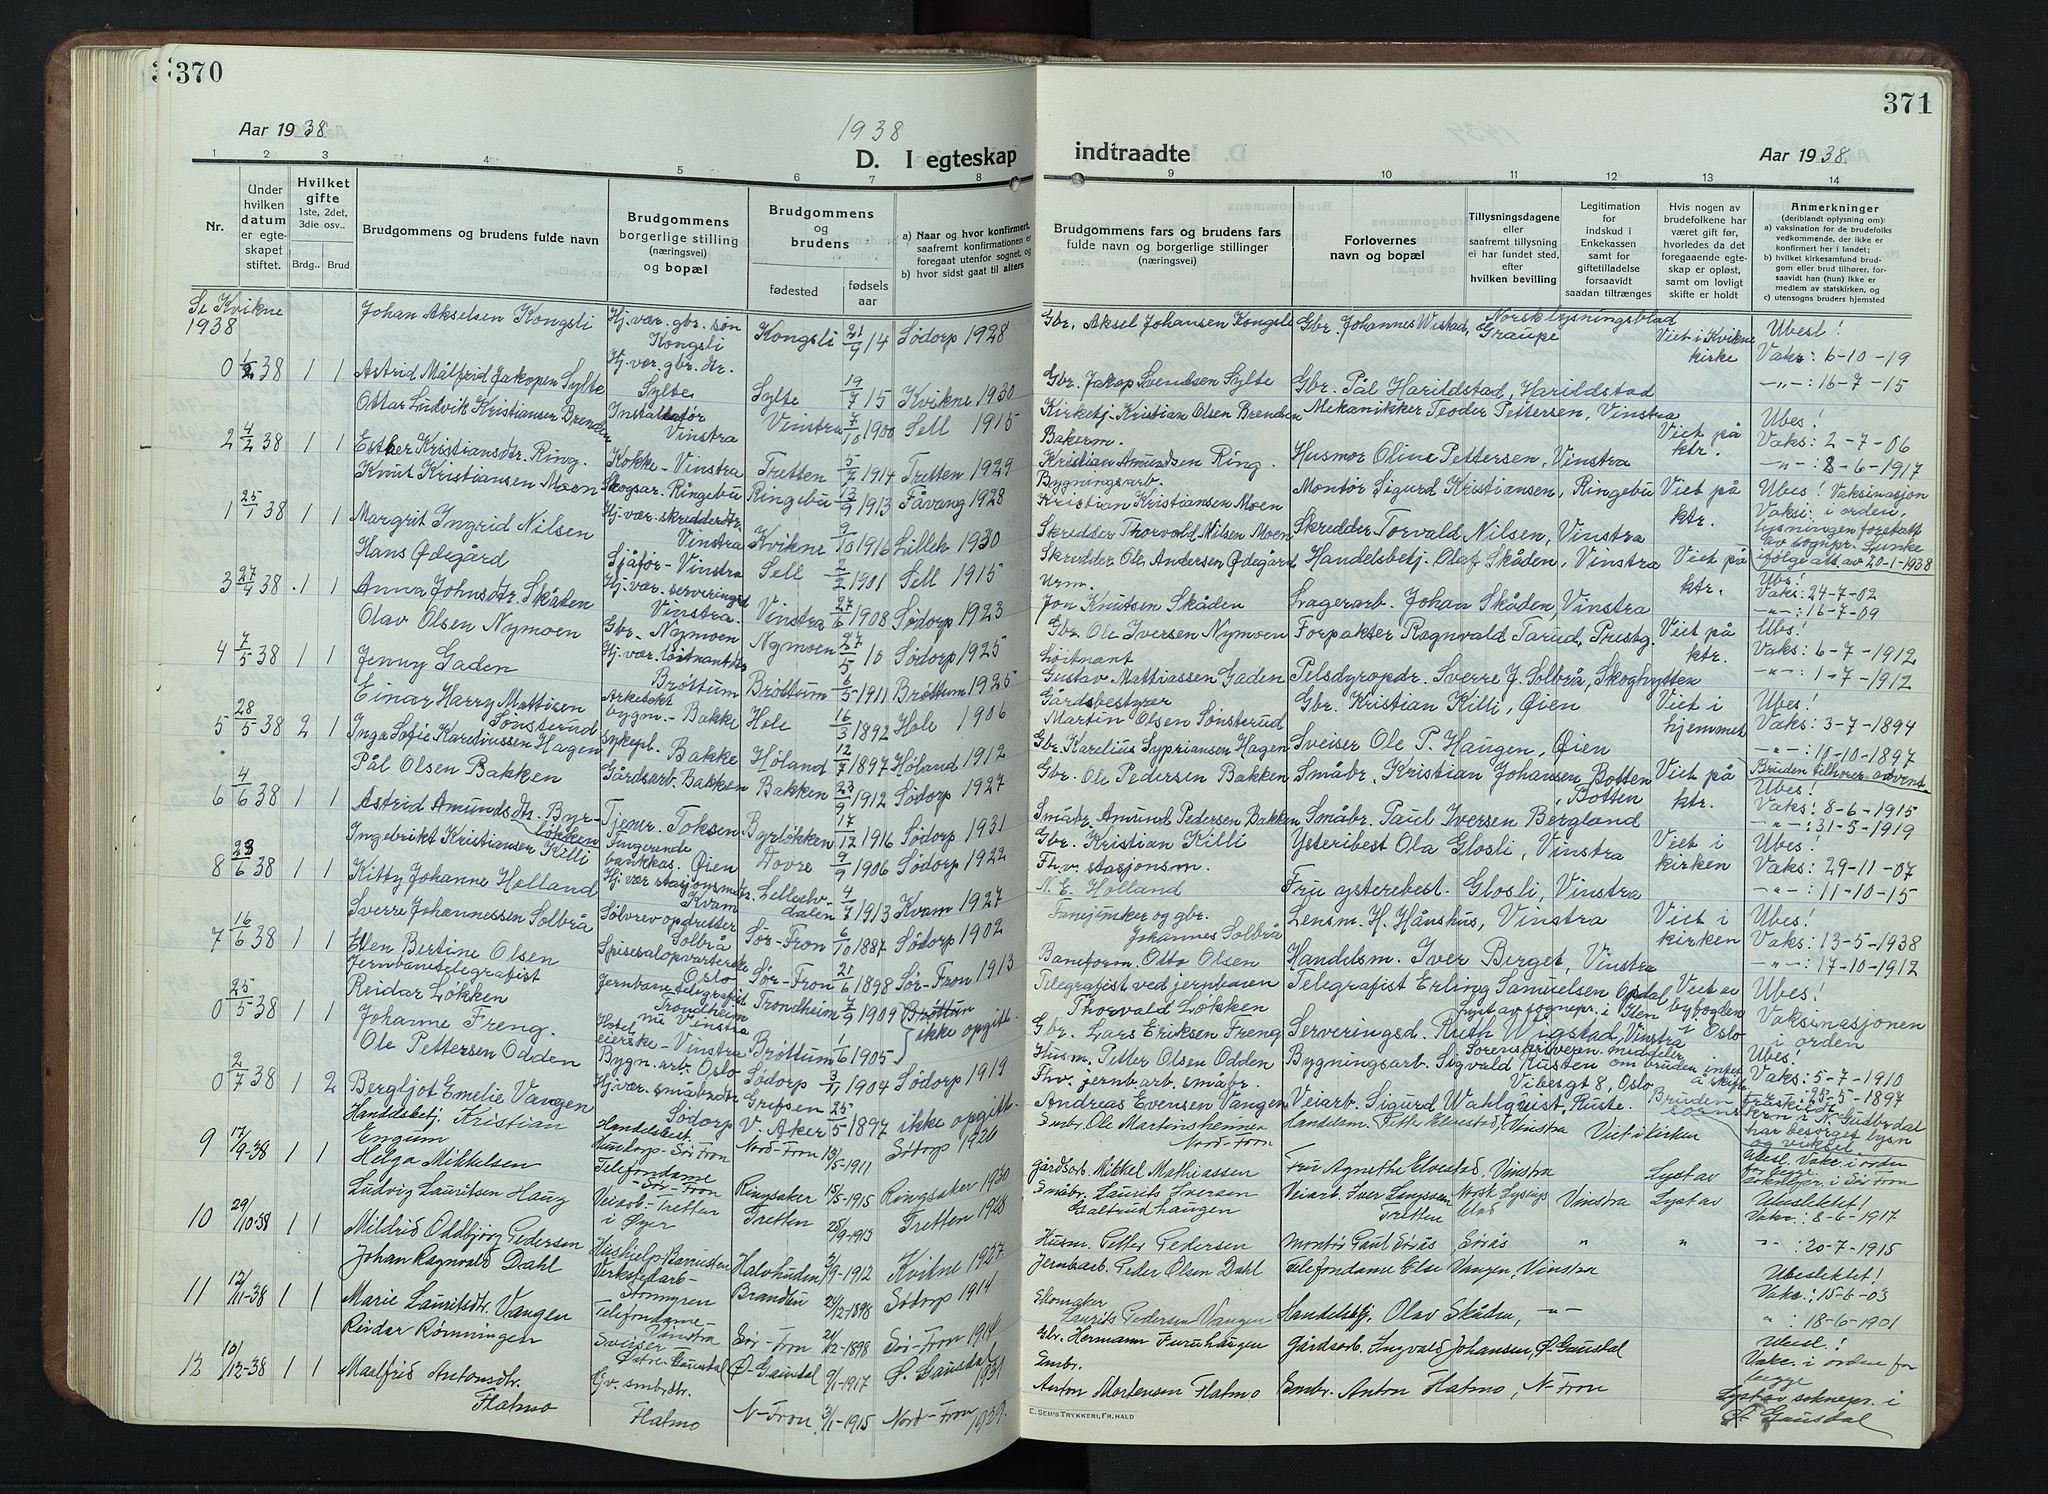 370
Aar 1938.
1938
D. I egteskap
1 2 3 4 5 6 7 8
Nr.
Under hvilken datum er egteskapet stiftet.
Hvilket gifte 1ste, 2det, 3die osv..
Brdg.. Brud
Brudgommens og brudens fulde navn
Brudgommens borgerlige stilling (næringsvei) og bopæl
Brudgommens og brudens
fødested
fødsels aar
a) Naar og hvor konfirmert, saafremt konfirmationen er foregaat utenfor sognet, og
b) hvor sidst gaat til alters
Se Kvikne 1938
Johan Akselsen Kongsli Hj. vær. gbr. søn Kongsli Kongsli 14 Sødorp 1928
0 38 1 1 Astrid Målfrid Jakopsen Sylte Hj. vær. gbr. dtr. Sylte Sylte 19/7 15 Kvikne 1930
Ottar Ludvik Kristiansen Brenden Installatør Vinstra Vinstra 7/10 1900 Sell 1915
2 4/2 38 1 1 Esther Kristiansdtr. Ring. Kokke - Vinstra Tretten 5/7 1914 Tretten 1929
Knut Kristiansen Moen Skogsar. Ringebu Ringebu 13/9 1913 Fåvang 1928
1 25/1 38 1 1 Margrit Ingrid Nilsen Hj. vær. skredderdtr. Vinstra Kvikne 9/10 1916 Lilleh 1930
Hans Ødegård Sjåfør - Vinstra Sell 2/2 1901 Sell 1915
3 27/4 38 1 1 Anna Johnsdtr. Skåden Hj. vær. serveringsd Vinstra. Vinstra 27/6 1908 Sødorp 1923
Olav Olsen Nymoen Gbr. Nymoen Nymoen 10 Sødorp 1925
4 7/5 38 1 1 Jenny Gaden Hj. vær. løitnantdtr Brøttum Brøttum 6/5 1911 Brøttum 1925
Einar Harry Mattisen Sønsterud Arkitekt bygm. - Bakke Hole 16/3 1892 Hole 1906
5 28/5 38 2 1 Inga Sofie Kareliussen Hagen sykepl. Bakke Høland 12/7 1897 Høland 1912
Pål Olsen Bakken Gårdsarb. Bakken Bakken 23/9 1912 Sødorp 1927
6 4/6 38 1 1 Astrid Amundsdtr. Byrløkken Tjenr. Toksen Byrløkken 17/12 1916 Sødorp 1931
Ingebrikt Kristiansen Killi Fungerende bankkas. Øien Dovre 9/9 1906 Sødorp 1922
8 23/6 38 1 1 Kitty Johanne Holland Hj. vær stasjonsmdtr. Kvam Lilleelvdalen 4/7 1913 Kvam 1927
Sverre Johannessen Solbrå Sølvrevopdretter Solbrå Sør-Fron 6/10 1887 Sødorp 1902
7 16/6 38 1 1 Ellen Bertine Olsen Spisesalopvarterske Oslo Sør-Fron 21/6 1898 Sør-Fron 1913
Jernbanetelegrafist Reidar Løkken Jernbanetelegrafist Trondheim Trondheim 7/9 1909 Brøttun
0 25/5 38 1 1 Johanne Freng. Hoteleierske - Vinstra Brøttum 1/6 1905 ikke opgitt.
Ole Pettersen Odden Bygn. arb. Oslo Sødorp 3/11 1904 Sødorp 1919
0 2/7 38 1 2 Bergljot Emelie Vangen Hj. vær. småbrdtr Sødorp Grefsen V. Aker 25/5 1897 ikke opgitt.
Handelsbetj. Kristian Engum Handelsbet. Hundorp - Sør Fron Nord-Fron 13/5-1911 Sødorp 1926
9 17/9-38 1 1 Helga Mikkelsen Telefondame - Sør-Fron Ringsaker 15/5-1915 Ringsaker 1930
Ludvig Lauritsen Haug Veiarb - Tretten i Øyer Tretten 25/9-1913 Tretten 1928
10 29/10-38 1 1 Mildrid Oddbjørg Pedersen Hushjelp - Kvikne 1927
Johan Ragnvald Dahl Verkstedarb - Brandbu 24/12-1898 Sødorp 1914
11 12/11-38 1 1 Marie Lauritsdtr. Vangen Telefondame - Vinstra Sør-Fron 21/12-1898 Sør-Fron 1914
Reidar Rømningen Sveiser Østre Gausdal Ø-Gausdal 9/1-1917 Ø. Gausdal 1931
12 10/12-38 1 1 Maalfrid Antonsdtr. Flatmo Hjv. smbrdtr. Flatmo N-Fron 3/1-1915 Nord-Fron
371
indtraadte
Aar 1938.
9 10 11 12 13 14
Brudgommens fars og brudens fars fulde navn og borgerlige stillinger (næringsvei)
Forlovernes navn og bopæl
Tillysningsdagene eller saafremt tillysning ei har fundet sted, efter hvilken bevilling
Legitimation for indskud i Enkekassen samt for giftetilladelse forsaavidt saadan tiltrænges
Hvis nogen av brudefolkene har været gift før, hvorledes da det foregaaende egteskap er opløst, samt om lovligt skifte er holdt
Anmerkninger (deriblandt oplysning om):
a) vaksination for de brudefolks vedkommende, der ikke er konfirmert her i landet;
b) hvilket kirkesamfund brudgom eller brud tilhører, forsaavidt han (hun) ikke er medlem av statskirken, og
c) utensogns bruders hjemsted
Gbr. Aksel Johansen Kongsli Gbr. Johannes Wistad, Graupe Norsk lysningsblad Viet i Kvikne kirke Ubesl! Vaks: 6-10-19
Gbr. Jakop Svendsen Sylte Gbr. Pål Harildstad, Harildstad -"-: 16-7-15
Kirketj. Kristian Olsen Brenden Mekanikker Teodor Pettersen, Vinstra Viet på ktr. Ubes! Vaks: 2-7-06
Bakerm. Kristian Amundsen Ring. Husmor Olina Pettersen, Vinstra -"-: 8-6-1917
Bygningsarb. Kristian Kristiansen Moen Montør Sigurd Kristiansen, Ringebu Viet på ktr. Ubes! Vaksinasjon
Skredder Thorvald Nilsen Moen Skredder Torvald Nilsen, Vinstra Vaks: i orden, lysningen foretatt av sognepr. ifølge att. av 20-1-1938
Skredder Ole Andersen Ødegård Handelsbetj. Olaf Skåden, Vinstra Viet på ktr. Ubs! Vaks: 24-7-02
Urm. Jon Knutsen Skåden Lagerarb. Johan Skåden, Vinstra -"-: 16-7-09
Gbr. Ole Iversen Nymoen Forpakter Ragnvald Tarud, Prestg. Viet på ktr. Ubs! Vaks: 6-7-1912
Løitnant Gustav Mattiassen Gaden Pelsdyropdr. Sverre J. Solbrå, Skoghytten -"-: 1-7-1912
Gårdsbestyrer Martin Olsen Sønsterud Gbr. Kristian Killi, Øien Viet i hjemmet Ubes! Vaks: 3-7-1894
Gbr. Karelius Sypriansen Hagen Sveiser Ole P. Haugen, Øien -"-: 10-10-1897 Bruden tilhører advent
Gbr. Ole Pedersen Bakken Småbr. Kristian Johansen Botten, Botten Viet på ktr. Ubes! Vaks: 8-6-1915
Småbr. Amund Pedersen Bakken Småbr. Paul Iversen Bergland -"-: 31-5-1919
Gbr. Kristian Killi Ysteribest Ola Glosli, Vinstra Viet i kirken Ubes! Vaks: 29-11-07
Fh. v. stasjonsm. N. E. Holland Fru ysterebest. Glosli, Vinstra -"-: 11-10-15
Fanejunker og gbr. Johannes Solbrå Lensm. H. Hånshus, Vinstra Viet i kirken Ubes! Vaks: 13-5-1938
Baneform. Otto Olsen Handelsm. Iver Berget, Vinstra -"-: 17-10-1912
Telegrafist ved jernbanen Thorvald Løkken Telegrafist Erling Samuelsen Opdal Lyst av sognepr. i Ilen Viet av byfogden i Oslo Ubes! Vaksinasjonen i orden
Gbr. Lars Eriksen Freng Serveringsd. Ruth Wigstad, Vinstra
Husm. Petter Olsen Odden Bygningsarb. Sigvald Rusten Vibesgt 8, Oslo Sorenskriveren meddeler om bruden intet å skifte Ubes! Vaks: 5-7-1910
Fhv. jernb. arb. småbr. Andreas Evensen Vangen Veiarb. Sigurd Wahlquist, Ruste. Bruden -"-: 25-5-1897
Smbr. Ole Martinshennen Nord-Fron Handelsm. Vinstra Viet i kirken har besørget lysn og vielse
Gårdsarb. Mikkel Mathiassen Fru Agnethe Elvestad, Vinstra Lyst av Ubesl. Vaks. i orden for begge.
Småbr. Laurits Iversen Galtrudhaugen Veiarb. Iver Tretten Norsk Lysingsblad Vinstra Lyst av Ubeslektet! Vaks.: 8-6-1917
Husm. Petter Pedersen Montør Paul " " " : 20-7-1915
Jernbarb. Peder Olsen Dahl Telefondame Else Vangen, Vinstra Ubeslektet! Vaks: 15-6-03
Skomaker Laurits Pedersen Vangen Handelsbtj. Olav Skåden, -"- " : 18-6-1901
Gbr. Hermann Furuhaugen Gårdsarb. Ingvald Johansen, Ø. Gausdal Ubesl.! Vaks. i orden for begge
Smbr. Anton Mortensen Flatmo Smbr. Anton Flatmo, N-Fron Lyst av soknepr. i Ø. Gausdal
E. SEM'S TRYKKERI, FR.HALD